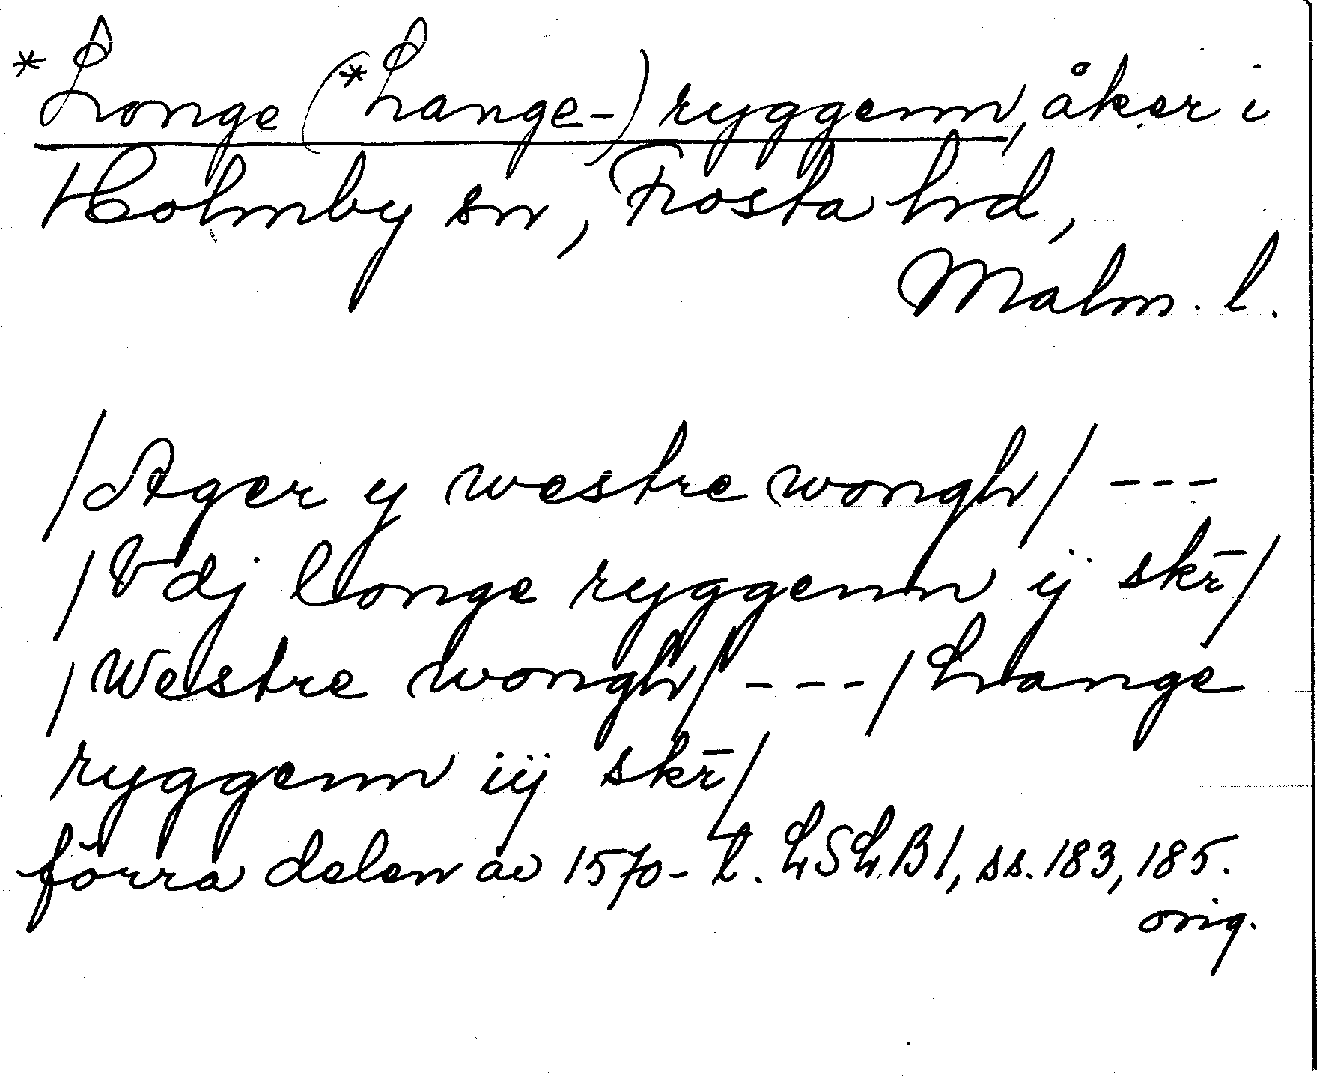 *Longe (*Lange-) ryggenn, åker i
Holmby sn, Frosta hd,
Malm. l.
/Ager y westre wongh/ ---
/Vdj Longe ryggenn ij skr̄/
/Westre wongh/ --- /Lange
ryggenn iij skr̄/
förra delen av 1570-t. LSLB1, ss. 183, 185.
orig.